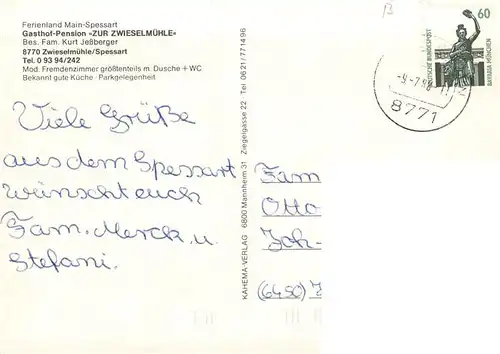 Ferienland Main-Spessart
Gasthof-Pension »ZUR ZWIESELMÜHLE«
Bes. Fam. Kurt Jeßberger
8770 Zwieselmühle/Spessart
Tel. 0 93 94/242
Mod. Fremdenzimmer größtenteils m. Dusche + WC
Bekannt gute Küche / Parkgelegenheit
Viele Grüße
aus dem Spessart
wünscht euch
Fam. Merck u.
Stefani.
KAHEMA-VERLAG 6800 Mannheim 31 Ziegelgasse 22 Tel. 0621/771496
60
DEUTSCHE BUNDESPOST
BAVARIA MÜNCHEN
8771
Fam
Otto
Joh-
(6450)